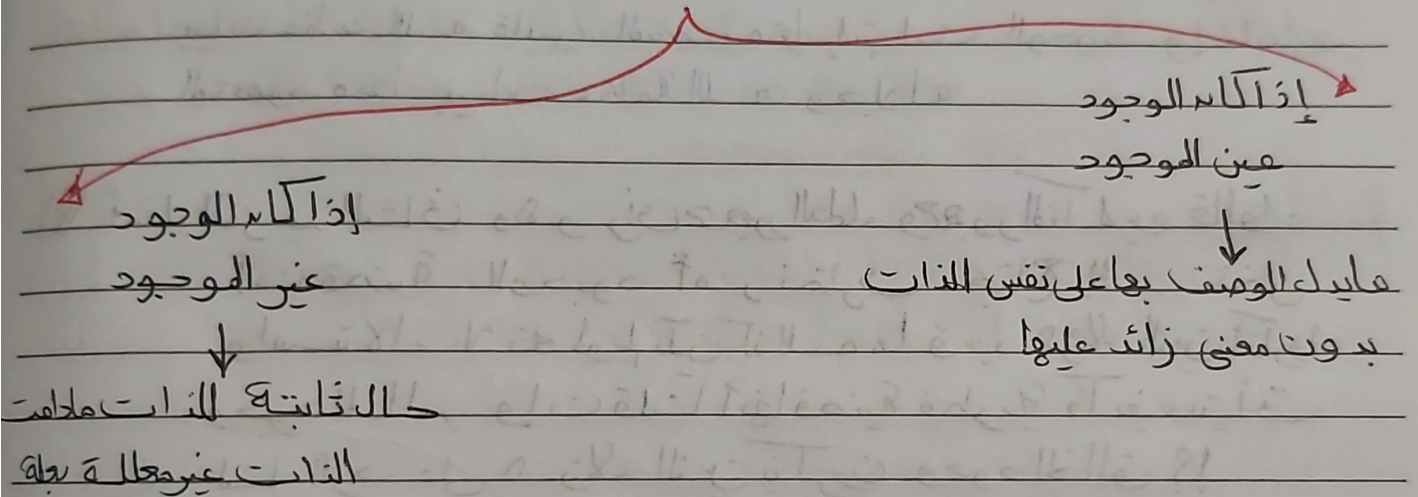 إذا كان الوجود
عين الموجود
ما يدل الوصف بها على نفس الذات
بدون معنى زائد عليها
إذا كان الوجود
غير الموجود
حال ثابتة للذات مادامت
الذات غير معللة بعلة